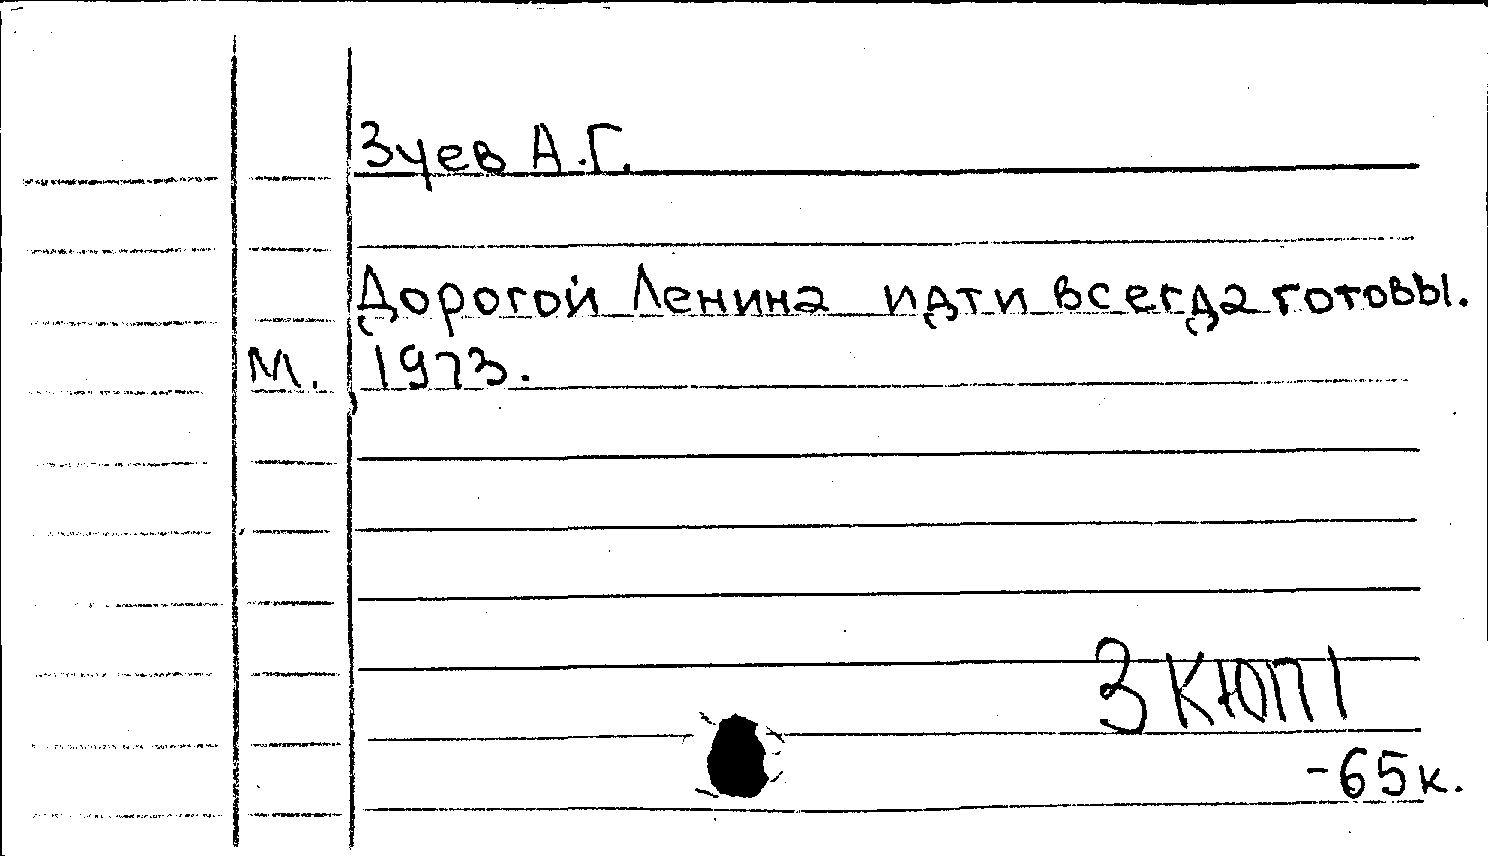 Зуев А.Г.
Дорогой Ленина идти всегда готовы.
М. 1973.
3 КЮП1
-65к.